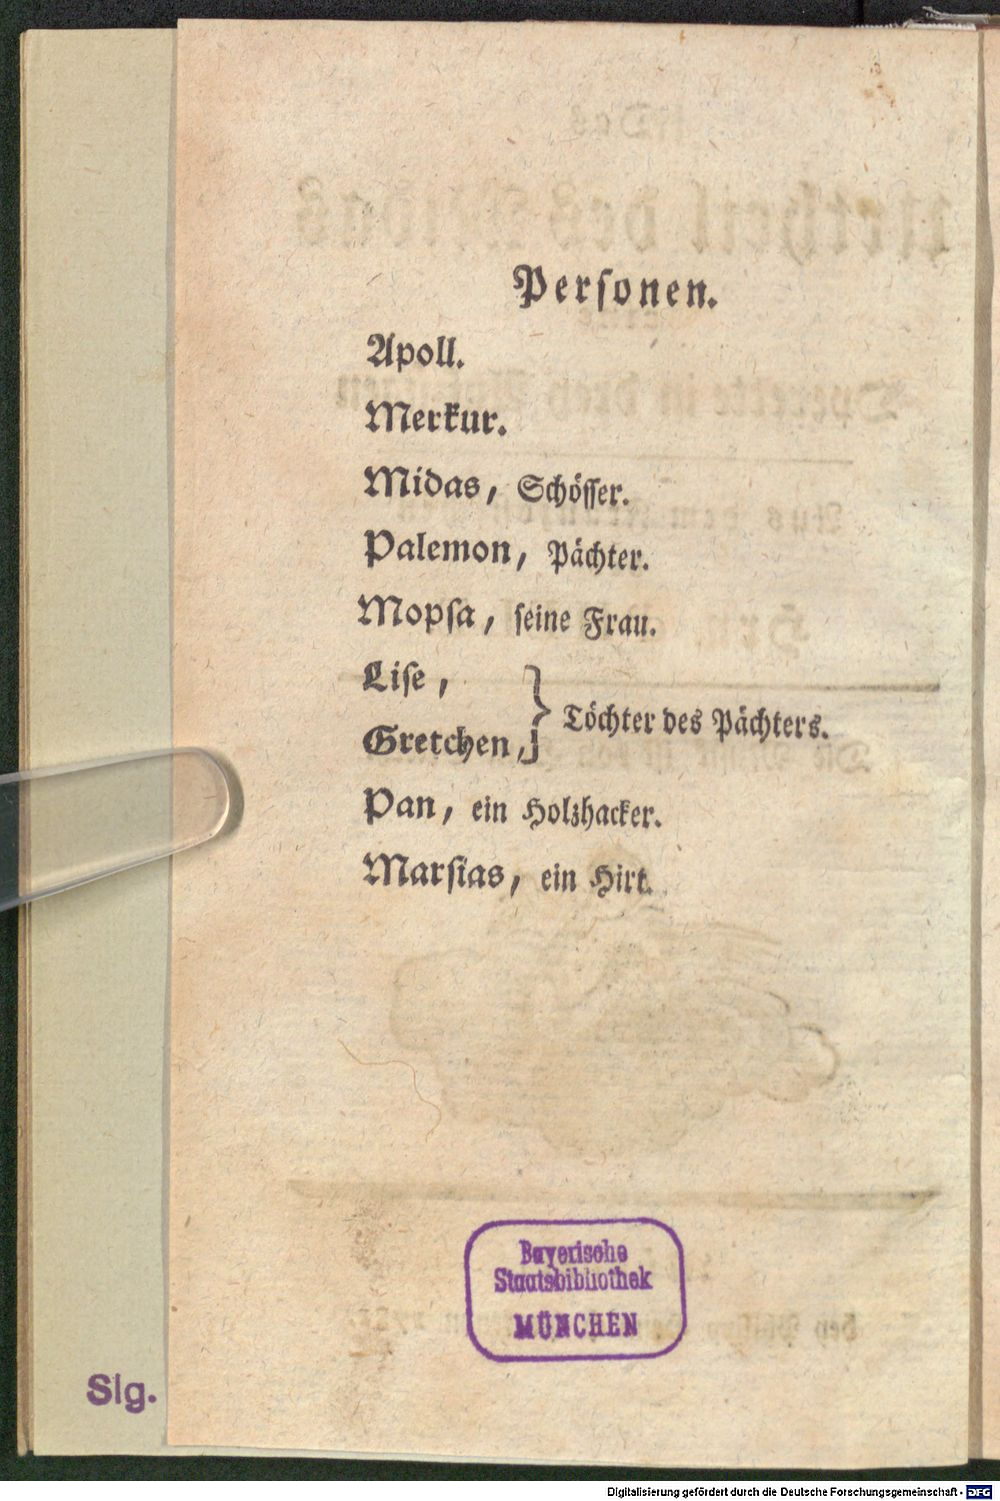 Personen.
Apoll.
Merkur.
Midas, Schösser.
Palemon, Pächter.
Mopsa, seine Frau.
Lise,
Gretchen, } Töchter des Pächters.
Pan, ein Holzhacker.
Marsias, ein Hirt.
Bayerische
Staatsbibliothek
MÜNCHEN
Slg.
Digitalisierung gefördert durch die Deutsche Forschungsgemeinschaft - DFG